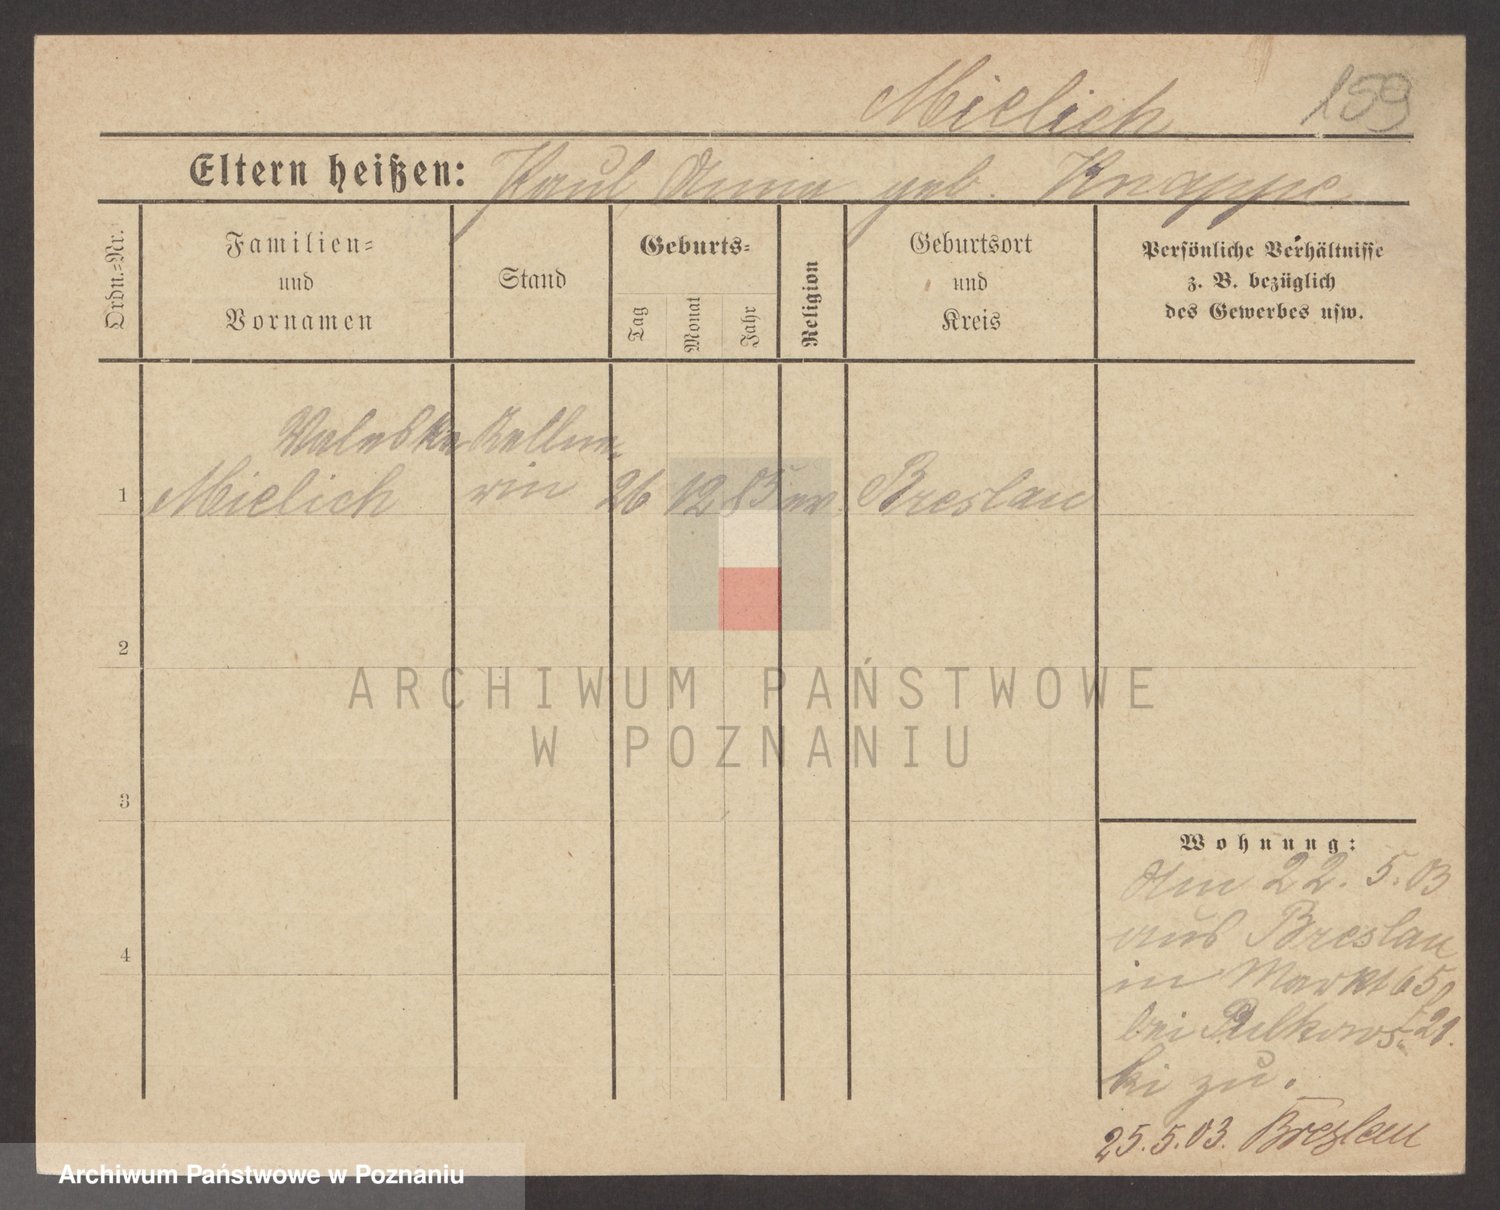 Mielich 159
Eltern heißen: Paul, Anna geb. Knappe
Ordn.-Nr.
Familien-
und
Vornamen
Stand
Geburts-
Tag
Monat
Jahr
Religion
Geburtsort
und
Kreis
Persönliche Verhältnisse
z. B. bezüglich
des Gewerbes usw.
Valeska Kellne-
1 Mielich rin 26 12 85 ev. Breslau
2
ARCHIWUM PAŃSTWOWE
W POZNANIU
3
Wohnung:
Am 22. 5. 03
aus Breslau
in Markt 650
bei Pulkows-
ki zu.
4
25.5.03. Breslau
Archiwum Państwowe w Poznaniu